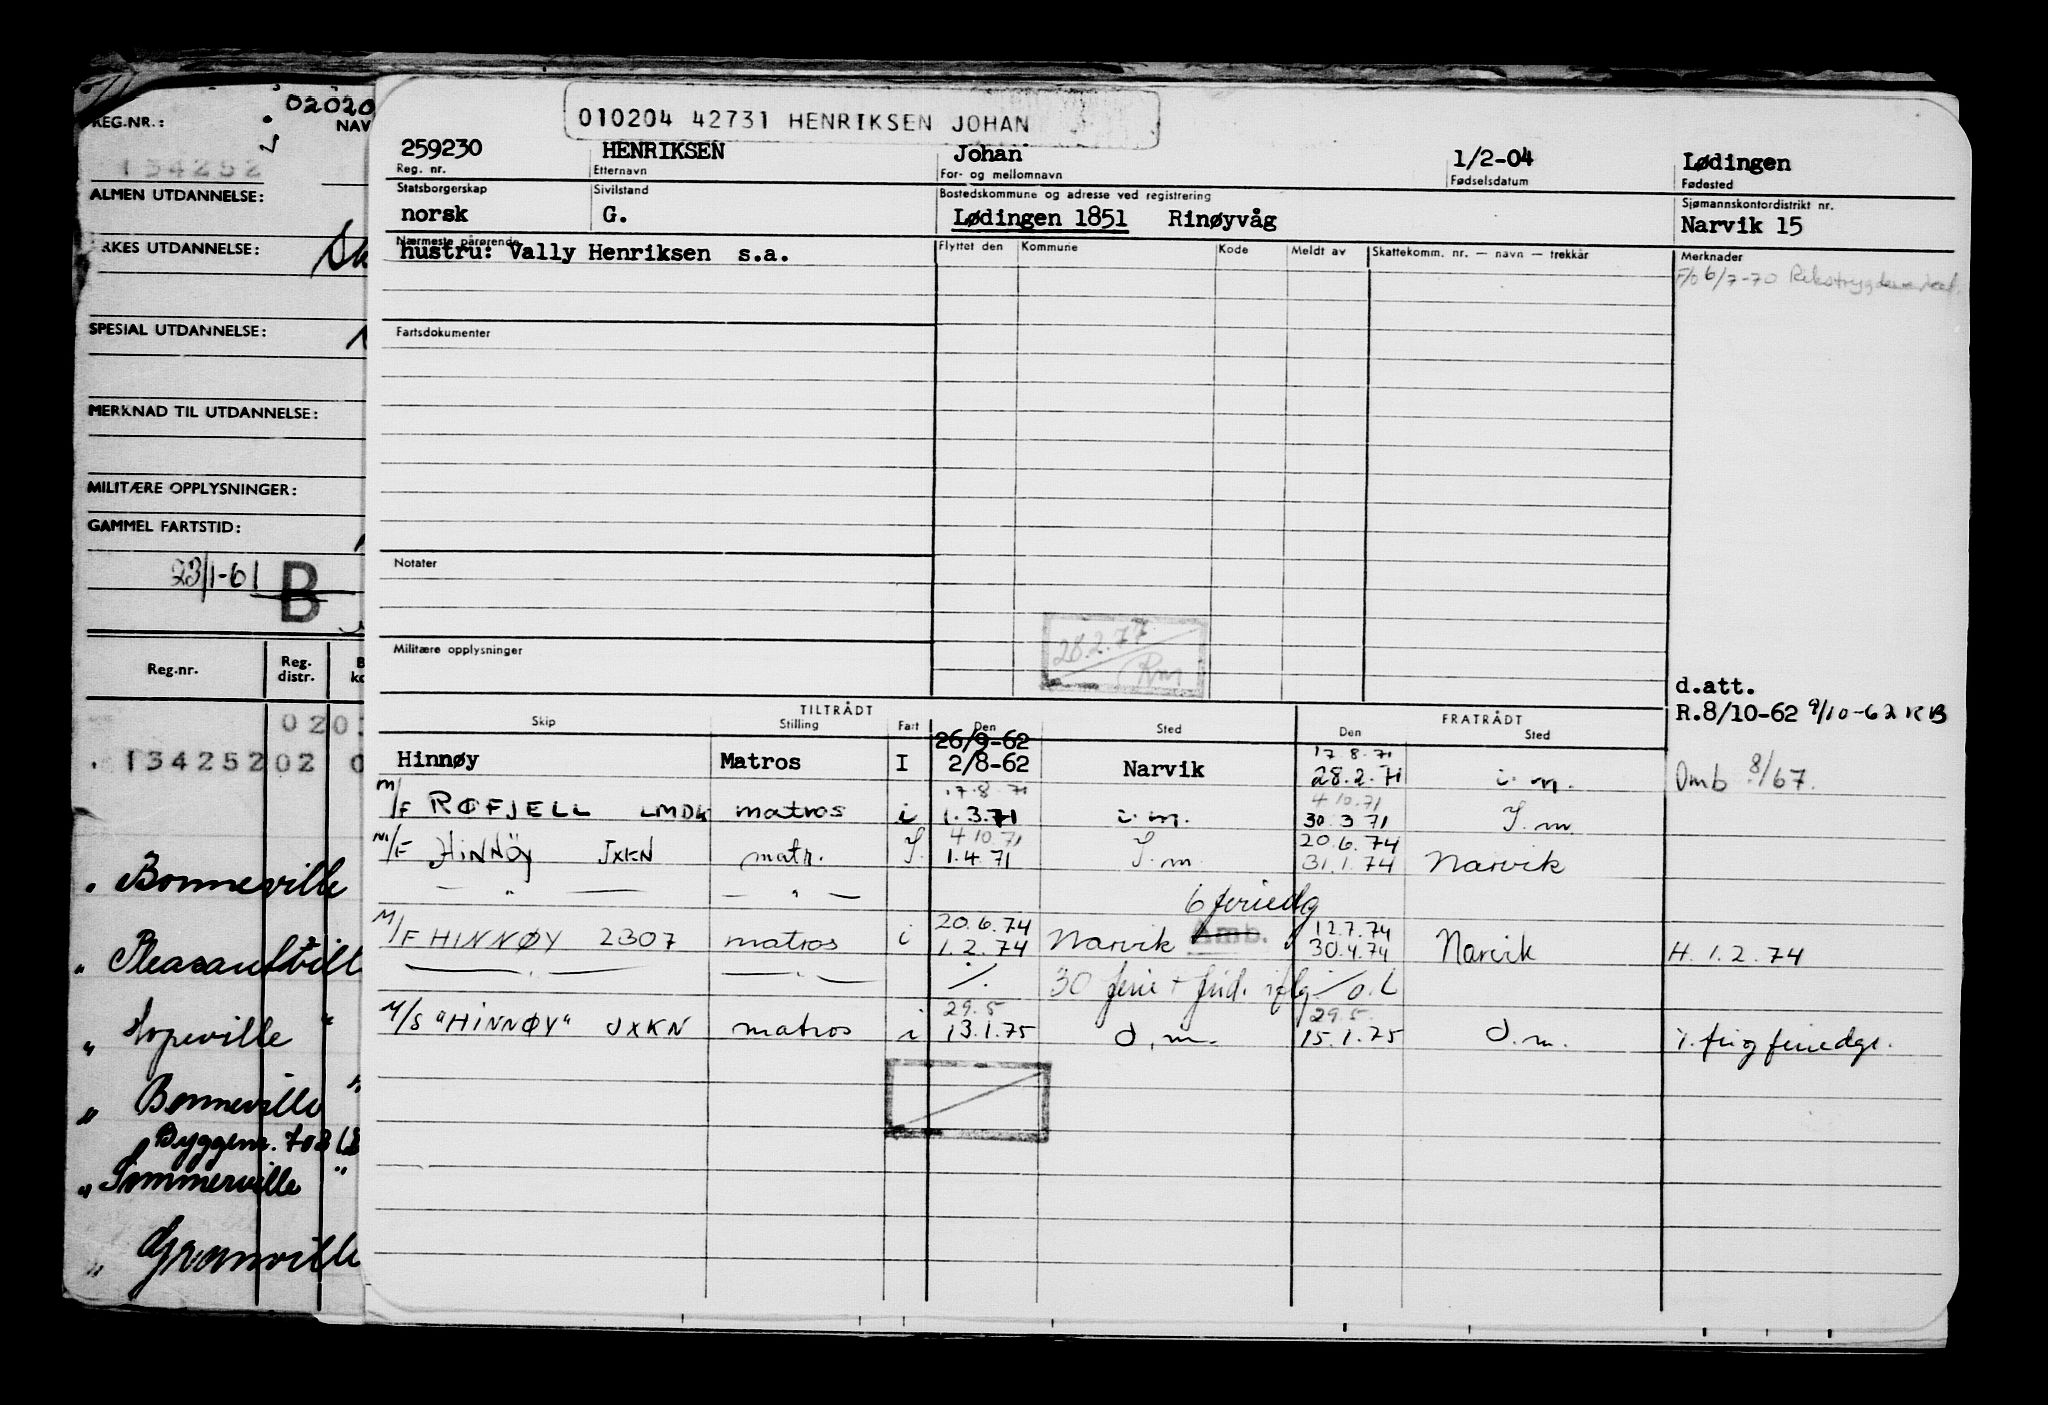 02020
REG.NR.: NAV
134252
ALMEN UTDANNELSE:
RKES UTDANNELSE:
SPESIAL UTDANNELSE:
MERKNAD TIL UTDANNELSE:
MILITÆRE OPPLYSNINGER:
GAMMEL FARTSTID:
23/1-61 B
Reg.nr. Reg. distr.
134252 02 0
" Bonneville
" Pleasantvill
" Hopeville "
" Bonneville "
Byggenr. 703
" Sommerville "
" Granville
010204 42731 HENRIKSEN JOHAN
259230 HENRIKSEN Johan 1/2-04 Lødingen
Reg. nr. Etternavn For- og mellomnavn Fødselsdatum Fødested
Statsborgerskap Sivilstand Bostedskommune og adresse ved registrering Sjømannskontordistrikt nr.
norsk G. Lødingen 1851 Rinøyvåg Narvik 15
Nærmeste pårørende Flyttet den Kommune Kode Meldt av Skattekomm. nr. — navn — trekkår Merknader
hustru: Vally Henriksen s.a.
F/o 6/7-70
Fartsdokumenter
Notater
28.2.77
Militære opplysninger
d.att.
R.8/10-62 9/10-62 KB
TILTRÅDT FRATRÅDT
Skip Stilling Fart Den Sted Den Sted
26/9-62 17.8.71
Hinnøy Matros I 2/8-62 Narvik 28.2.71 i.m. Omb 8/67.
17.8.71 4.10.71
M/F RØFJELL LMDK matros i 1.3.71 i.m. 30.3.71 I.m
4.10.71 20.6.74
M/F HINNÖY JXKN matr. I. 1.4.71 I.m 31.1.74 Narvik
— " — — " — 6 feriedg
20.6.74 12.7.74
M/F HINNØY 2307 matros i 1.2.74 Narvik Amb. 30.4.74 Narvik H. 1.2.74
— " — — " — ./. 30 ferie + frid.
29.5 29.5.
M/S "HINNØY" JXKN matros i 13.1.75 d.m. 15.1.75 d.m.